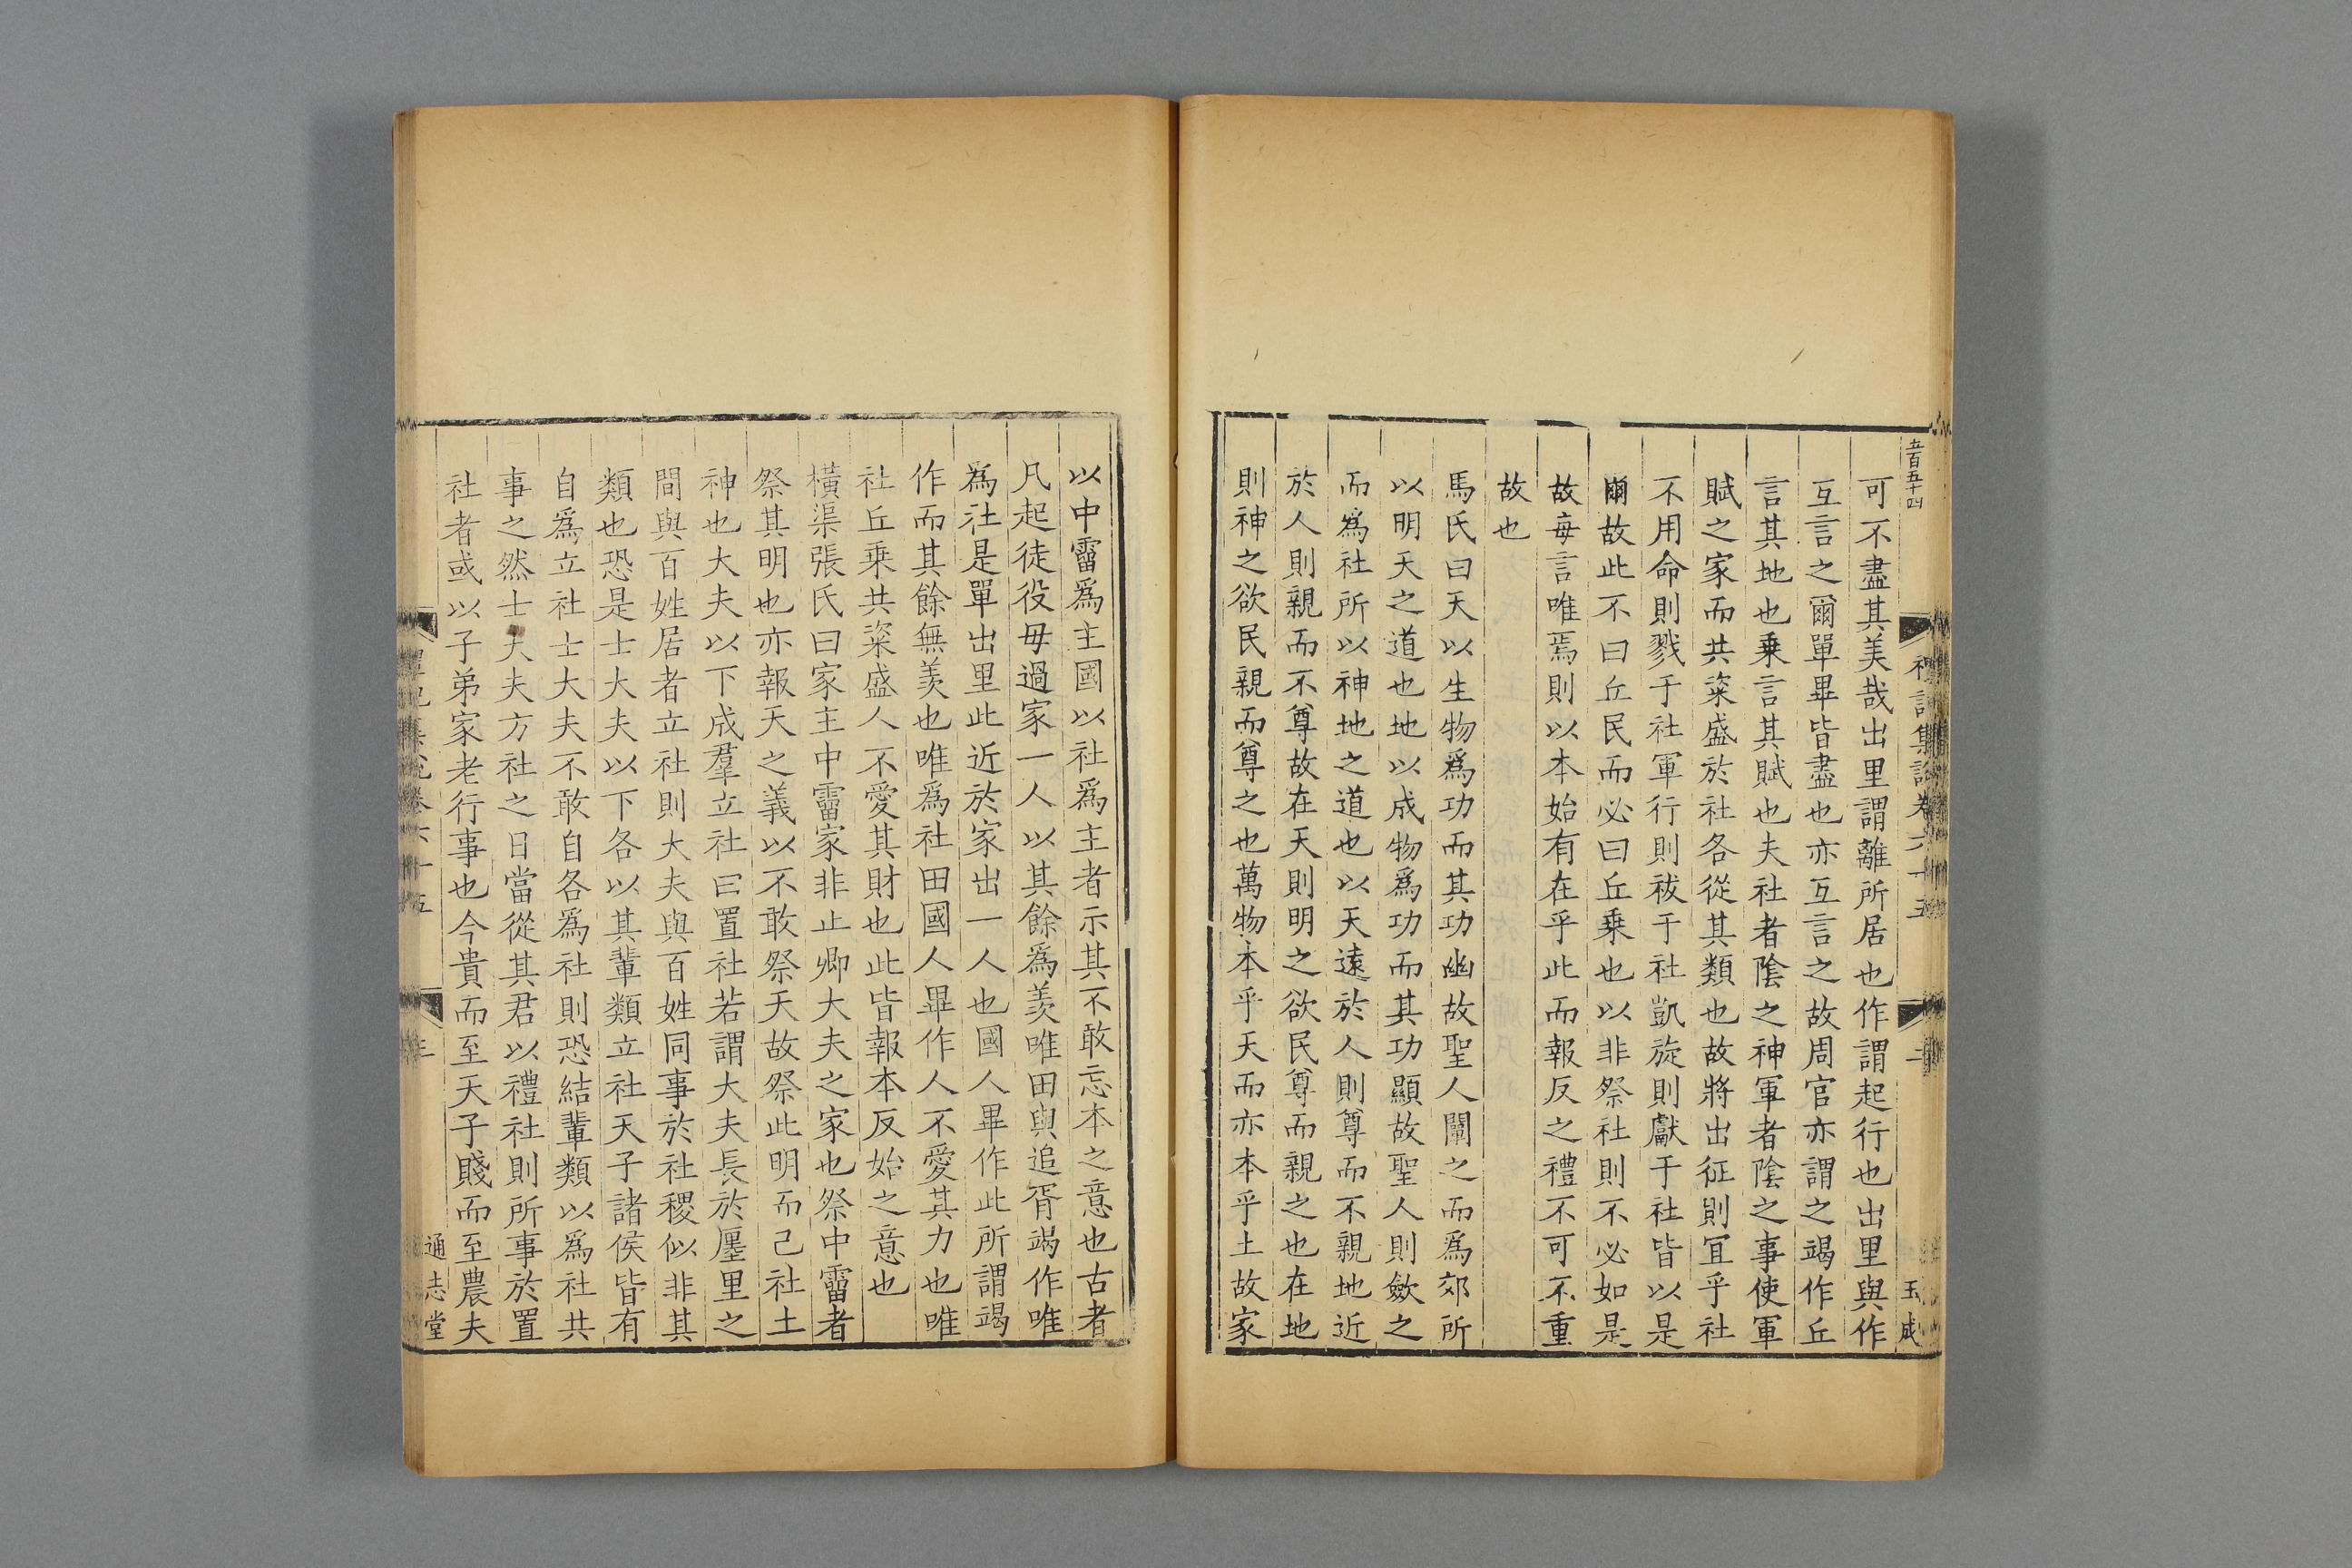 五百五十四
可不盡其美哉出里謂離所居也作謂起行也出里與作
互言之爾單畢皆盡也亦互言之故周官亦謂之竭作丘
言其地也乗言其賦也夫社者陰之神軍者陰之事使軍
賦之家而共粢盛於社各從其類也故將出征則冝乎社
不用命則戮于社軍行則祓于社凱旋則獻于社皆以是
爾故此不曰丘民而必曰丘乗也以非祭社則不必如是
故毎言唯焉則以本始有在乎此而報反之禮不可不重
故也
馬氏曰天以生物爲功而其功幽故聖人闡之而爲郊所
以明天之道也地以成物爲功而其功顯故聖人則斂之
而爲社所以神地之道也以天遠於人則尊而不親地近
於人則親而不尊故在天則明之欲民尊而親之也在地
則神之欲民親而尊之也萬物本乎天而亦本乎土故家
禮記集說卷六十五
二
玉成
以中霤爲主國以社爲主者示其不敢忘本之意也古者
凡起徒役毋過家一人以其餘爲羨唯田與追胥竭作唯
爲社是單出里此近於家出一人也國人畢作此所謂竭
作而其餘無羨也唯爲社田國人畢作人不愛其力也唯
社丘乗共粢盛人不愛其財也此皆報本反始之意也
橫渠張氏曰家主中霤家非止卿大夫之家也祭中霤者
祭其明也亦報天之義以不敢祭天故祭此明而己社土
神也大夫以下成羣立社曰置社若謂大夫長於廛里之
間與百姓居者立社則大夫與百姓同事於社稷似非其
類也恐是士大夫以下各以其輩類立社天子諸侯皆有
自爲立社士大夫不敢自各爲社則恐結輩類以爲社共
事之然士大夫方社之日當從其君以禮社則所事於置
社者或以子弟家老行事也今貴而至天子賤而至農夫
禮記集說卷六十五
三
通志堂